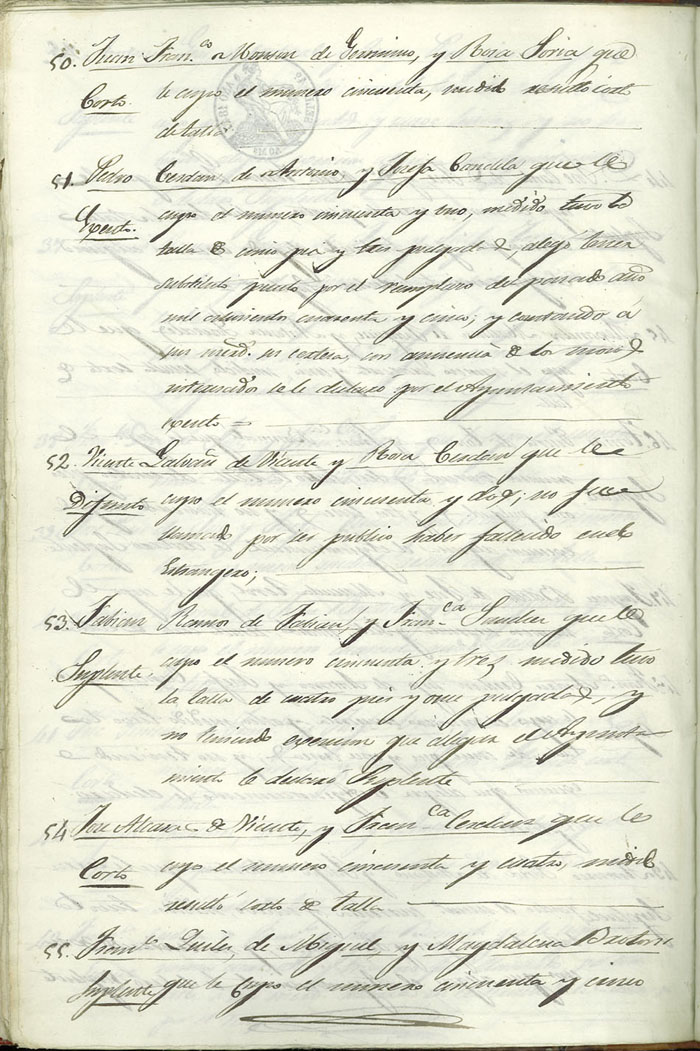 50. Juan Fran.co Monson de Geronimo, y Rosa Soria que
Corto. le cupo el numero cincuenta, medido resultó corto
de talla
51. Pedro Cerdan de Antonio, y Josefa Candela que le
Exento. cupo el numero cincuenta y uno, medido tuvo la
talla de cinco pies y tres pulgadas, alegó tener
substituto puesto por el reemplazo del pasado año
mil ochocientos cuarenta y cinco; y constando á
sus con anuencia de los
se le declaró por el Ayuntamiento
exento =
52. Vicente Galvañ de Vicente y Rosa Cerdan que le
Difunto cupo el numero cincuenta y dos; no fue
llamado por ser publico haber fallecido en el
Estrangero;
53. Fabian Ramos de Fabian, y Fran.ca Sanchez que le
Suplente. cupo el numero cincuenta y tres medido tuvo
la talla de cuatro pies y once pulgadas, y
no teniendo exencion que alegar el Ayunta-
miento le declaró Suplente
54. Jose de Vicente, y Fran.ca Cerdan que le
Corto cupo el numero cincuenta y cuatro, medido
resultó corto de talla
55. Fran.co Quiles, de Miguel y Magdalena
Suplente que le cupo el numero cincuenta y cinco